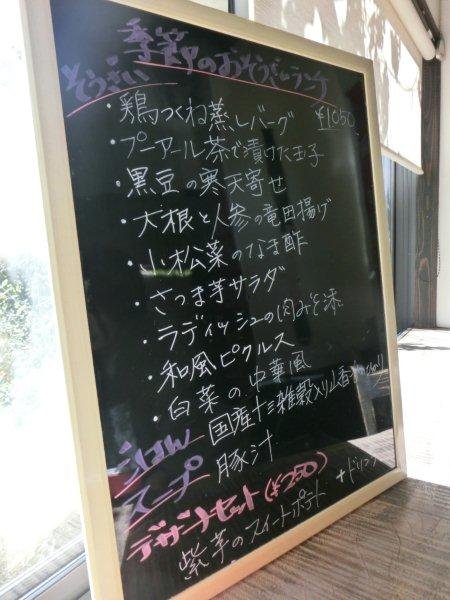 季節のおそうざいランチ
そうざい ¥1050
・鶏つくね蒸しバーグ
・プーアール茶で漬けた玉子
・黒豆の寒天寄せ
・大根と人参の竜田揚げ
・小松菜のなま酢
・さつま芋サラダ
・ラディッシュの肉みそ添
・和風ピクルス
・白菜の中華風
ごはん 国産十三雑穀入り
スープ 豚汁
デザートセット(¥250)
紫芋のスイートポテト +ドリンク